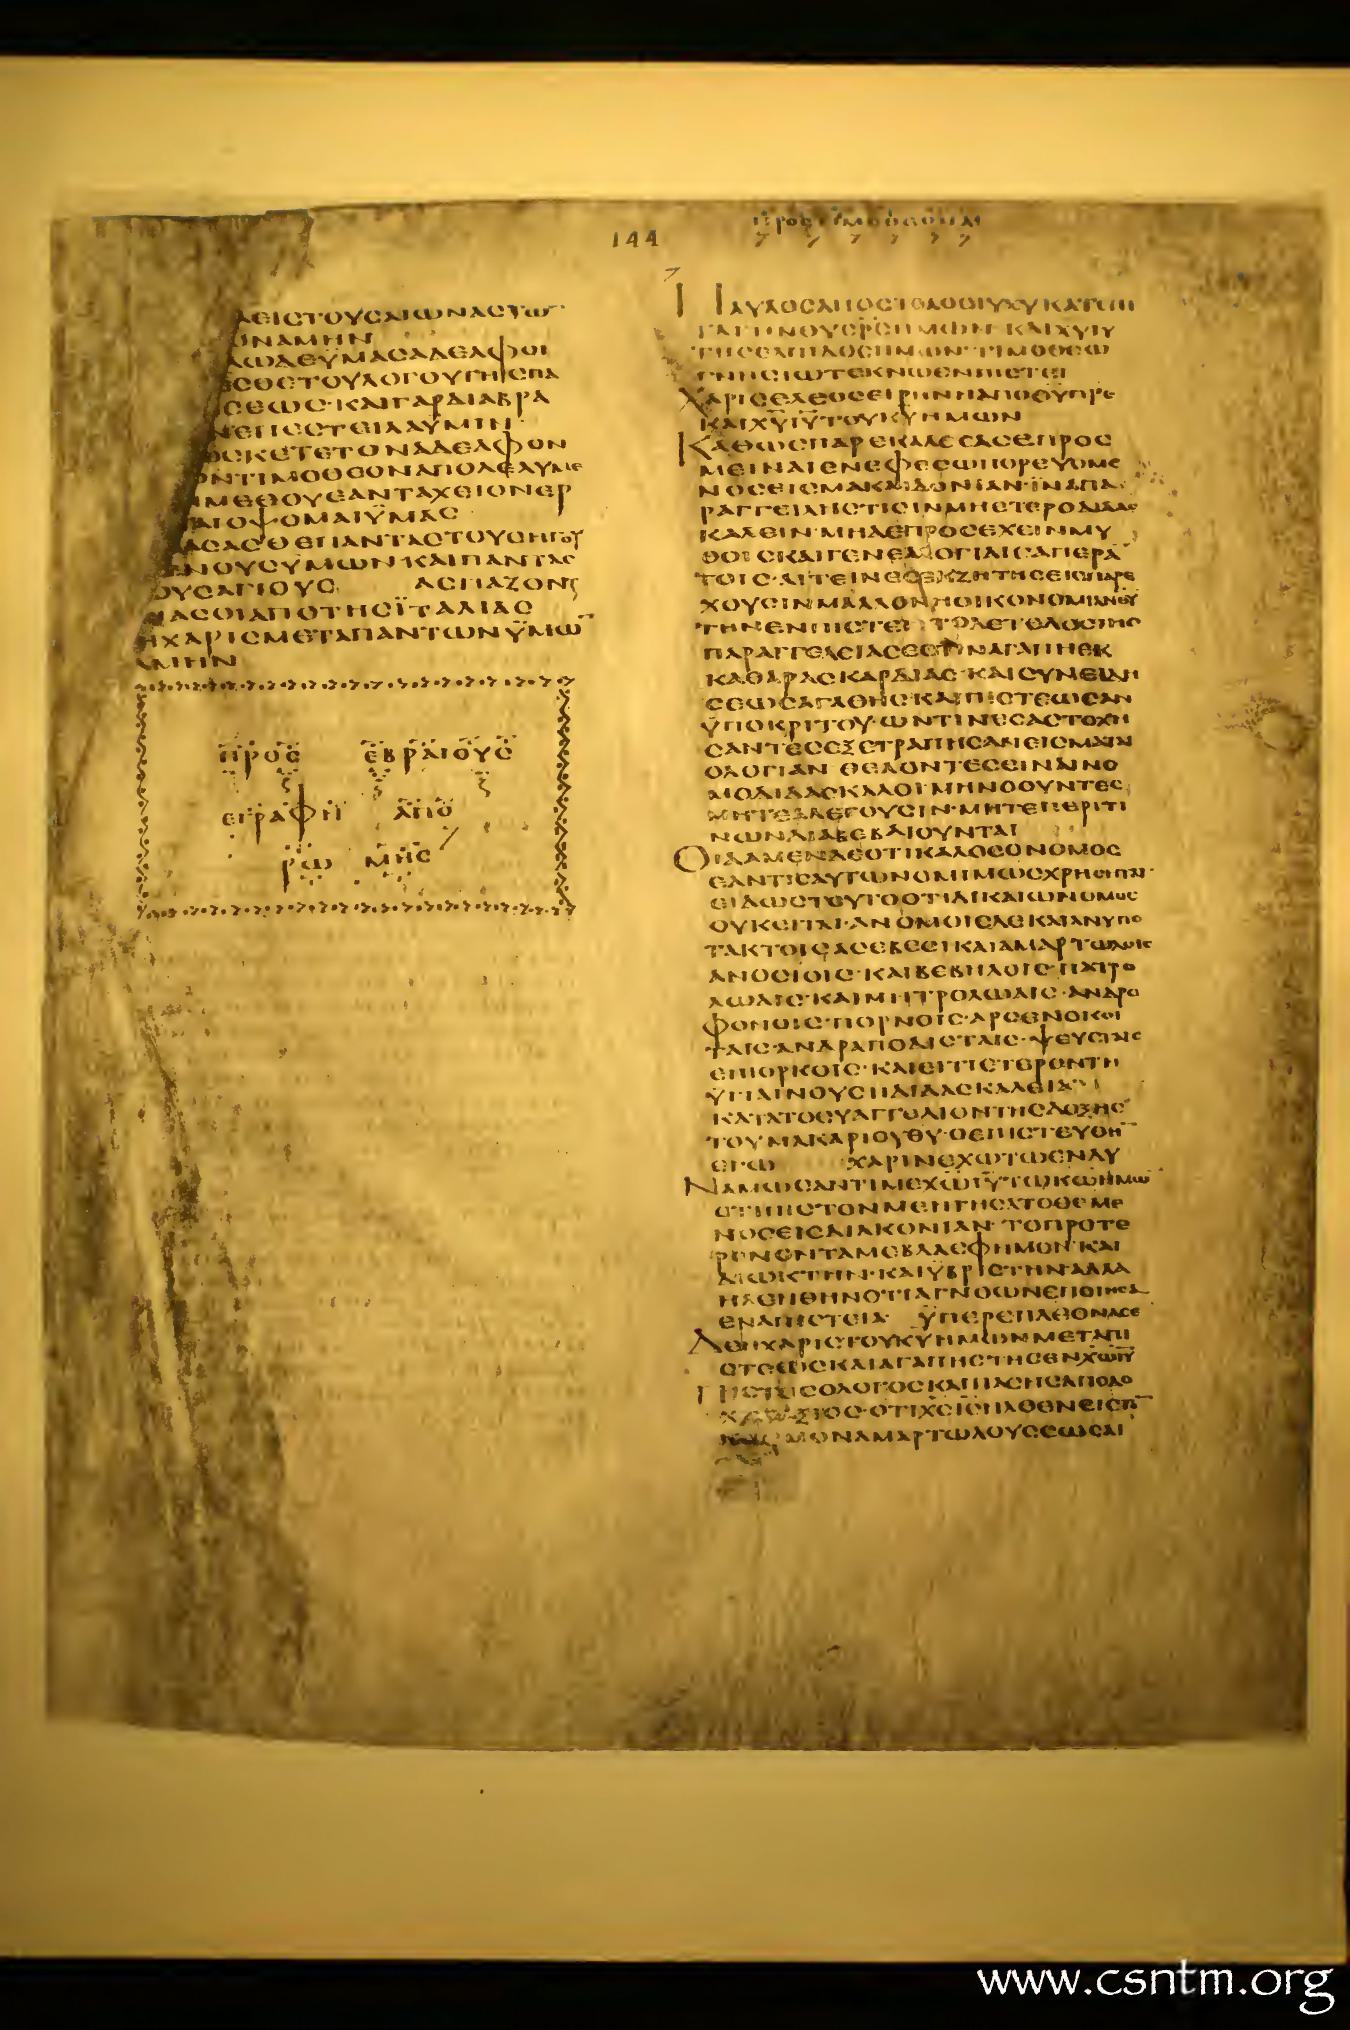 144
ΠΡΟΣ ΤΙΜΟΘΕΟΝ Α
ΕΙΣΤΟΥΣΑΙΩΝΑΣΤΩ
ΩΝΑΜΗΝ
ΛΩΔΕΫΜΑΣΑΔΕΛΦΟΙ
ΕΣΘΕΤΟΥΛΟΓΟΥΤΗΣΠΑ
ΣΕΩΣ·ΚΑΙΓΑΡΔΙΑΒΡΑ
ΕΠΕΣΤΕΙΛΑΫΜΙΝ
ΣΚΕΤΕΤΟΝΑΔΕΛΦΟΝ
ΤΙΜΟΘΕΟΝΑΠΟΛΕΛΥΜΕ
ΜΕΘΟΥΕΑΝΤΑΧΕΙΟΝΕΡ
ΑΙΟΨΟΜΑΙΫΜΑΣ
ΑΣΑΣΘΕΠΑΝΤΑΣΤΟΥΣΗΓΟΥ
ΝΟΥΣΫΜΩΝ·ΚΑΙΠΑΝΤΑΣ
ΟΥΣΑΓΙΟΥΣ ΑΣΠΑΖΟΝΤ
ΑΣΟΙΑΠΟΤΗΣΪΤΑΛΙΑΣ
ΗΧΑΡΙΣΜΕΤΑΠΑΝΤΩΝΫΜΩ
ΑΜΗΝ
ΠΡΟΣ ΕΒΡΑΙΟΥΣ
ΕΓΡΑΦΗ ΑΠΟ
ΡΩΜΗΣ
ΠΑΥΛΟΣΑΠΟΣΤΟΛΟΣΙΥΧΥΚΑΤΕΠΙ
ΤΑΓΗΝΘΥΣΡΣΗΜΩΝ·ΚΑΙΧΥΙΥ
ΤΗΣΕΛΠΙΔΟΣΗΜΩΝ·ΤΙΜΟΘΕΩ
ΓΝΗΣΙΩΤΕΚΝΩΕΝΠΙΣΤΕΙ
ΧΑΡΙΣΕΛΕΟΣΕΙΡΗΝΗΑΠΟΘΥΠΡΣ
ΚΑΙΧΥΙΥΤΟΥΚΥΗΜΩΝ
ΚΑΘΩΣΠΑΡΕΚΑΛΕΣΑΣΕΠΡΟΣ
ΜΕΙΝΑΙΕΝΕΦΕΣΩΠΟΡΕΥΟΜΕ
ΝΟΣΕΙΣΜΑΚΑΙΔΟΝΙΑΝ·ΪΝΑΠΑ
ΡΑΓΓΕΙΛΗΣΤΙΣΙΝΜΗΕΤΕΡΟΔΙΔΑΣ
ΚΑΛΕΙΝ·ΜΗΔΕΠΡΟΣΕΧΕΙΝΜΥ
ΘΟΙΣΚΑΙΓΕΝΕΑΛΟΓΙΑΙΣΑΠΕΡΑ
ΤΟΙΣ·ΑΙΤΕΙΝΕΣΕΚΖΗΤΗΣΕΙΣΠΑΡΕ
ΧΟΥΣΙΝΜΑΛΛΟΝΗΟΙΚΟΝΟΜΙΑΝΘΥ
ΤΗΝΕΝΠΙΣΤΕΙ ΤΟΔΕΤΕΛΟΣΤΗΣ
ΠΑΡΑΓΓΕΛΕΙΑΣΕΣΤΙΝΑΓΑΠΗΕΚ
ΚΑΘΑΡΑΣΚΑΡΔΙΑΣ·ΚΑΙΣΥΝΕΙΔΗ
ΣΕΩΣΑΓΑΘΗΣΚΑΙΠΙΣΤΕΩΣΑΝ
ΫΠΟΚΡΙΤΟΥ·ΩΝΤΙΝΕΣΑΣΤΟΧΗ
ΣΑΝΤΕΣΕΞΕΤΡΑΠΗΣΑΝΕΙΣΜΑΤΑΙ
ΟΛΟΓΙΑΝ ΘΕΛΟΝΤΕΣΕΙΝΑΙΝΟ
ΜΟΔΙΔΑΣΚΑΛΟΙ·ΜΗΝΟΟΥΝΤΕΣ
ΜΗΤΕΑΛΕΓΟΥΣΙΝ·ΜΗΤΕΠΕΡΙΤΙ
ΝΩΝΔΙΑΒΕΒΑΙΟΥΝΤΑΙ
ΟΙΔΑΜΕΝΔΕΟΤΙΚΑΛΟΣΟΝΟΜΟΣ
ΕΑΝΤΙΣΑΥΤΩΝΟΜΙΜΩΣΧΡΗΣΗΤΑΙ·
ΕΙΔΩΣΤΟΥΤΟΟΤΙΔΙΚΑΙΩΝΟΜΟΣ
ΟΥΚΕΙΤΑΙ·ΑΝΟΜΟΙΣΔΕΚΑΙΑΝΥΠΟ
ΤΑΚΤΟΙΣΑΣΕΒΕΣΙΚΑΙΑΜΑΡΤΩΛΟΙΣ
ΑΝΟΣΙΟΙΣ·ΚΑΙΒΕΒΗΛΟΙΣ·ΠΑΤΡΟ
ΛΩΑΙΣ·ΚΑΙΜΗΤΡΟΛΩΑΙΣ·ΑΝΔΡΟ
ΦΟΝΟΙΣ·ΠΟΡΝΟΙΣ·ΑΡΣΕΝΟΚΟΙ
ΤΑΙΣ·ΑΝΔΡΑΠΟΔΙΣΤΑΙΣ·ΨΕΥΣΤΑΙΣ
ΕΠΙΟΡΚΟΙΣ·ΚΑΙΕΙΤΙΕΤΕΡΟΝΤΗ
ΫΓΙΑΙΝΟΥΣΗΔΙΔΑΣΚΑΛΕΙΑ
ΚΑΤΑΤΟΕΥΑΓΓΕΛΙΟΝΤΗΣΔΟΞΗΣ
ΤΟΥΜΑΚΑΡΙΟΥΘΥ·ΟΕΠΙΣΤΕΥΘΗ
ΕΓΩ ΧΑΡΙΝΕΧΩΤΩΕΝΔΥ
ΝΑΜΩΣΑΝΤΙΜΕΧΩΙΥΤΩΚΩΗΜΩ
ΟΤΙΠΙΣΤΟΝΜΕΗΓΗΣΑΤΟΘΕΜΕ
ΝΟΣΕΙΣΔΙΑΚΟΝΙΑΝ·ΤΟΠΡΟΤΕ
ΡΟΝΟΝΤΑΜΕΒΛΑΣΦΗΜΟΝ·ΚΑΙ
ΔΙΩΚΤΗΝ·ΚΑΙΫΒΡΙΣΤΗΝ·ΑΛΛΑ
ΗΛΕΗΘΗΝΟΤΙΑΓΝΟΩΝΕΠΟΙΗΣΑ
ΕΝΑΠΙΣΤΕΙΑ· ΫΠΕΡΕΠΛΕΟΝΑΣΕ
ΔΕΗΧΑΡΙΣΤΟΥΚΥΗΜΩΝΜΕΤΑΠΙ
ΣΤΕΩΣΚΑΙΑΓΑΠΗΣΤΗΣΕΝΧΩΙΥ
ΠΙΣΤΟΣΟΛΟΓΟΣΚΑΙΠΑΣΗΣΑΠΟΔΟ
ΧΗΣΑΞΙΟΣ·ΟΤΙΧΣΙΣΗΛΘΕΝΕΙΣΤ
ΚΟΣΜΟΝΑΜΑΡΤΩΛΟΥΣΣΩΣΑΙ
www.csntm.org